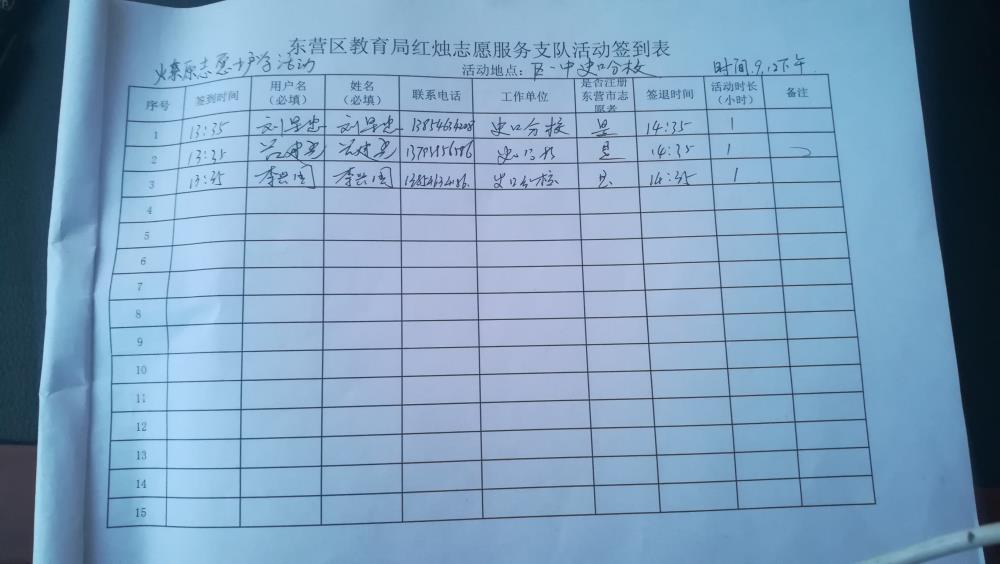 东营区教育局红烛志愿服务支队活动签到表
志愿护学活动 活动地点：区一中史口分校 时间.9.12下午.
序号 签到时间 用户名（必填） 姓名（必填） 联系电话 工作单位 是否注册东营市志愿者 签退时间 活动时长（小时） 备注
1 13:35 刘 刘 史口分校 是 14:35 1
2 13:35 是 14:35 1
3 13:35 李兴国 李兴国 史口分校 是 14:35 1
4
5
6
7
8
9
10
11
12
13
14
15